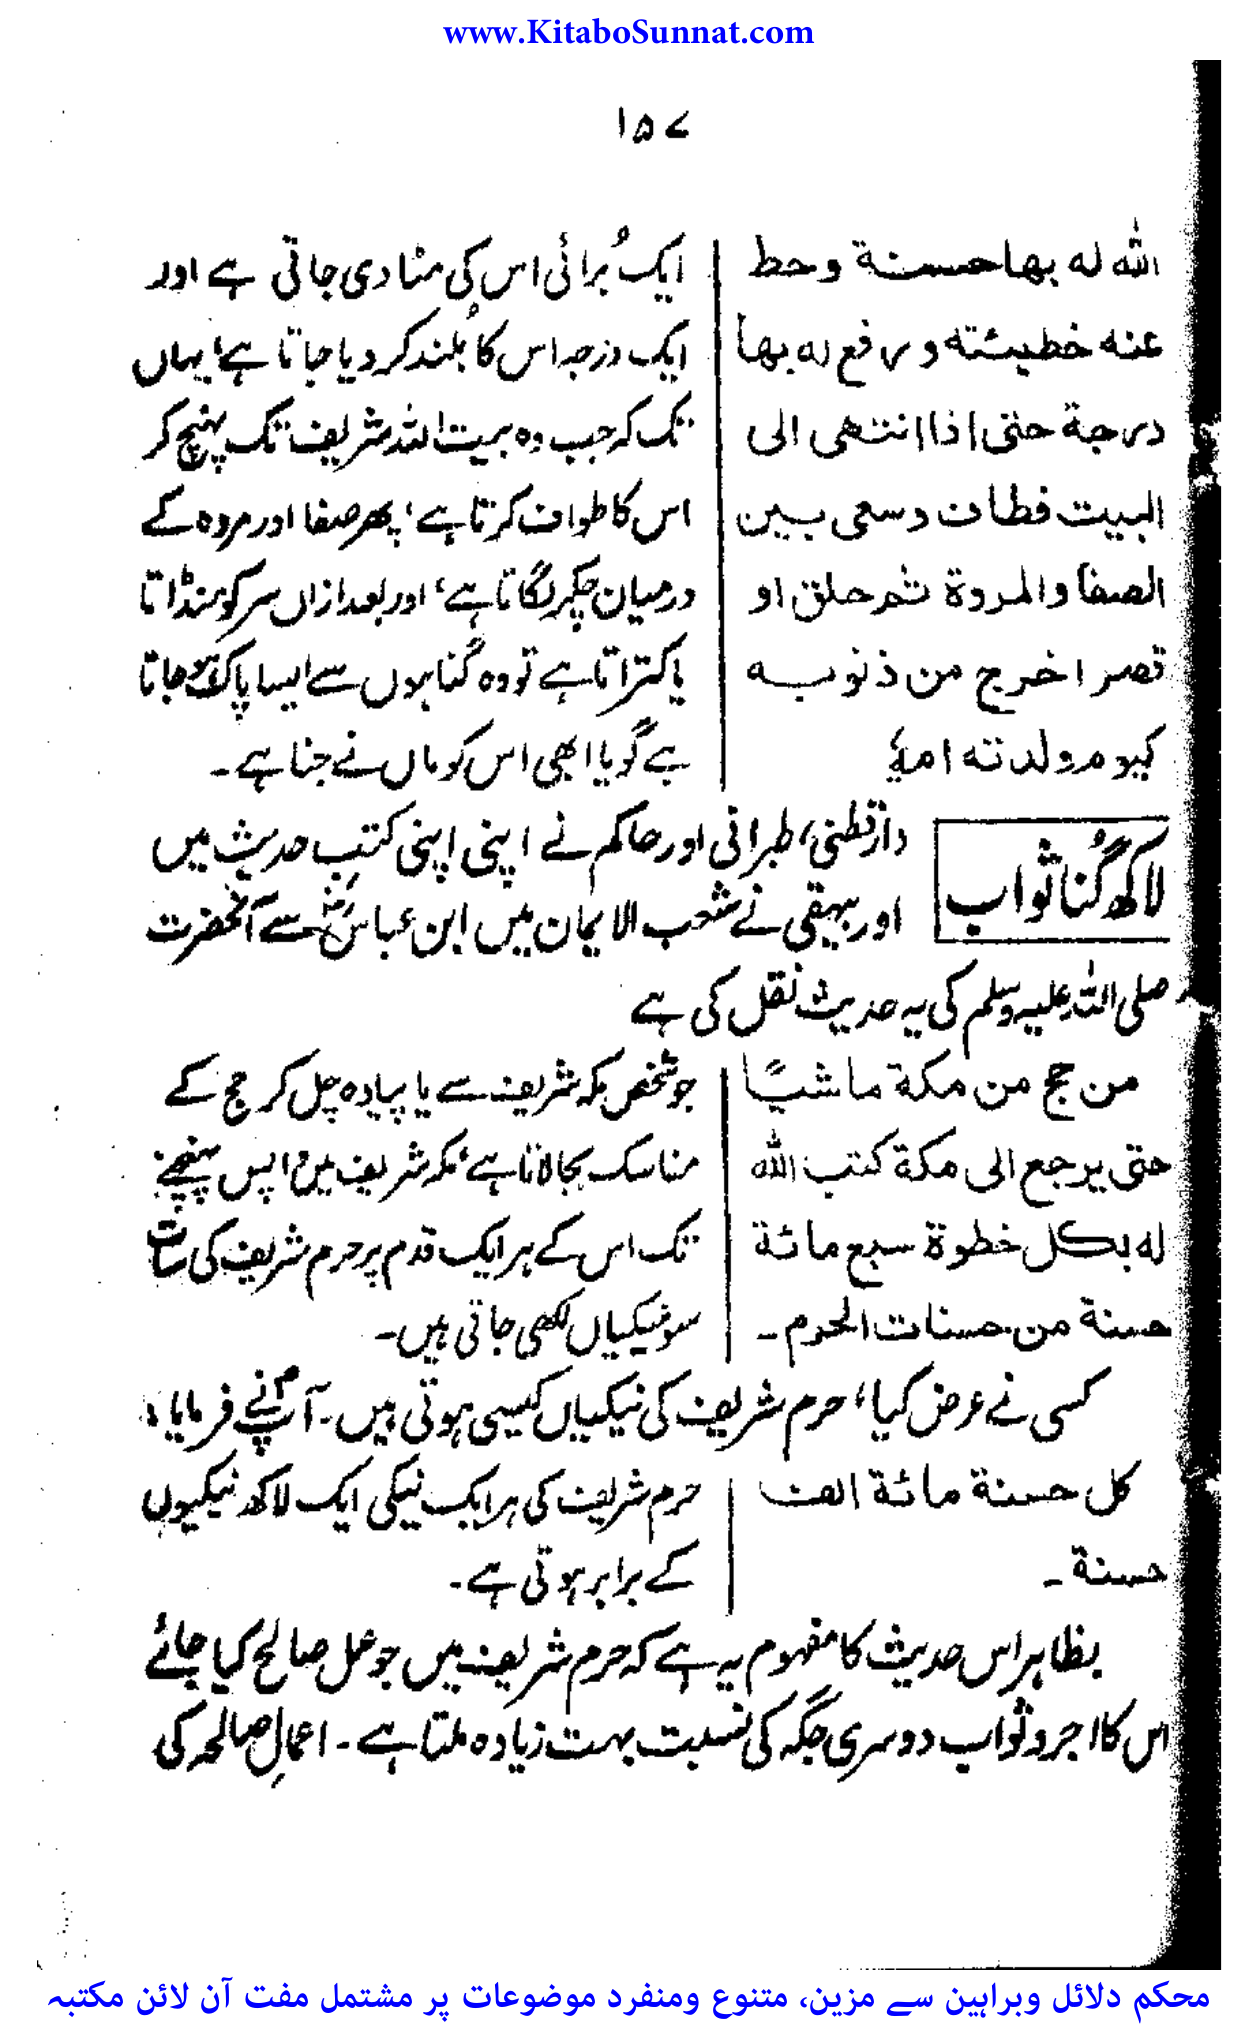 www.KitaboSunnat.com
۱۵۷
الله له بها حسنة وحط
عنه خطيئته ورفع له بها
درجة حتى اذا انتهى الى
البيت فطاف وسعى بين
الصفا والمروة ثم حلق او
قصر اخرج من ذنوبه
كيوم ولدته امه
ایک بُرائی اس کی مٹا دی جاتی ہے اور
ایک درجہ اس کا بُلند کر دیا جاتا ہے، یہاں
تک کہ جب وہ بیت اللہ شریف تک پہنچ کر
اس کا طواف کرتا ہے، پھر صفا اور مروہ کے
درمیان چکر لگاتا ہے، اور بعد ازاں سر کو منڈاتا
یا کتراتا ہے تو وہ گناہوں سے ایسا پاک ہو جاتا
ہے گویا ابھی اس کو ماں نے جنا ہے۔
لاکھ گُنا ثواب
دارقطنی، طبرانی اور حاکم نے اپنی اپنی کتبِ حدیث میں
اور بیہقی نے شعب الایمان میں ابن عباسؓ سے آنحضرت
صلی اللہ علیہ وسلم کی یہ حدیث نقل کی ہے
من حج من مكة ماشيًا
حتى يرجع الى مكة كتب الله
له بكل خطوة سبع مائة
حسنة من حسنات الحرم۔
جو شخص مکہ شریف سے پا پیادہ چل کر حج کے
مناسک بجا لاتا ہے، مکہ شریف میں واپس پہنچنے
تک اس کے ہر ایک قدم پر حرم شریف کی سات
سو نیکیاں لکھی جاتی ہیں۔
کسی نے عرض کیا، حرم شریف کی نیکیاں کیسی ہوتی ہیں۔ آپؐ نے فرمایا:
كل حسنة مائة الف
حسنة۔
حرم شریف کی ہر ایک نیکی ایک لاکھ نیکیوں
کے برابر ہوتی ہے۔
بظاہر اس حدیث کا مفہوم یہ ہے کہ حرم شریف میں جو عمل صالح کیا جائے
اس کا اجر و ثواب دوسری جگہ کی نسبت بہت زیادہ ملتا ہے۔ اعمالِ صالحہ کی
محکم دلائل وبراہین سے مزین، متنوع ومنفرد موضوعات پر مشتمل مفت آن لائن مکتبہ